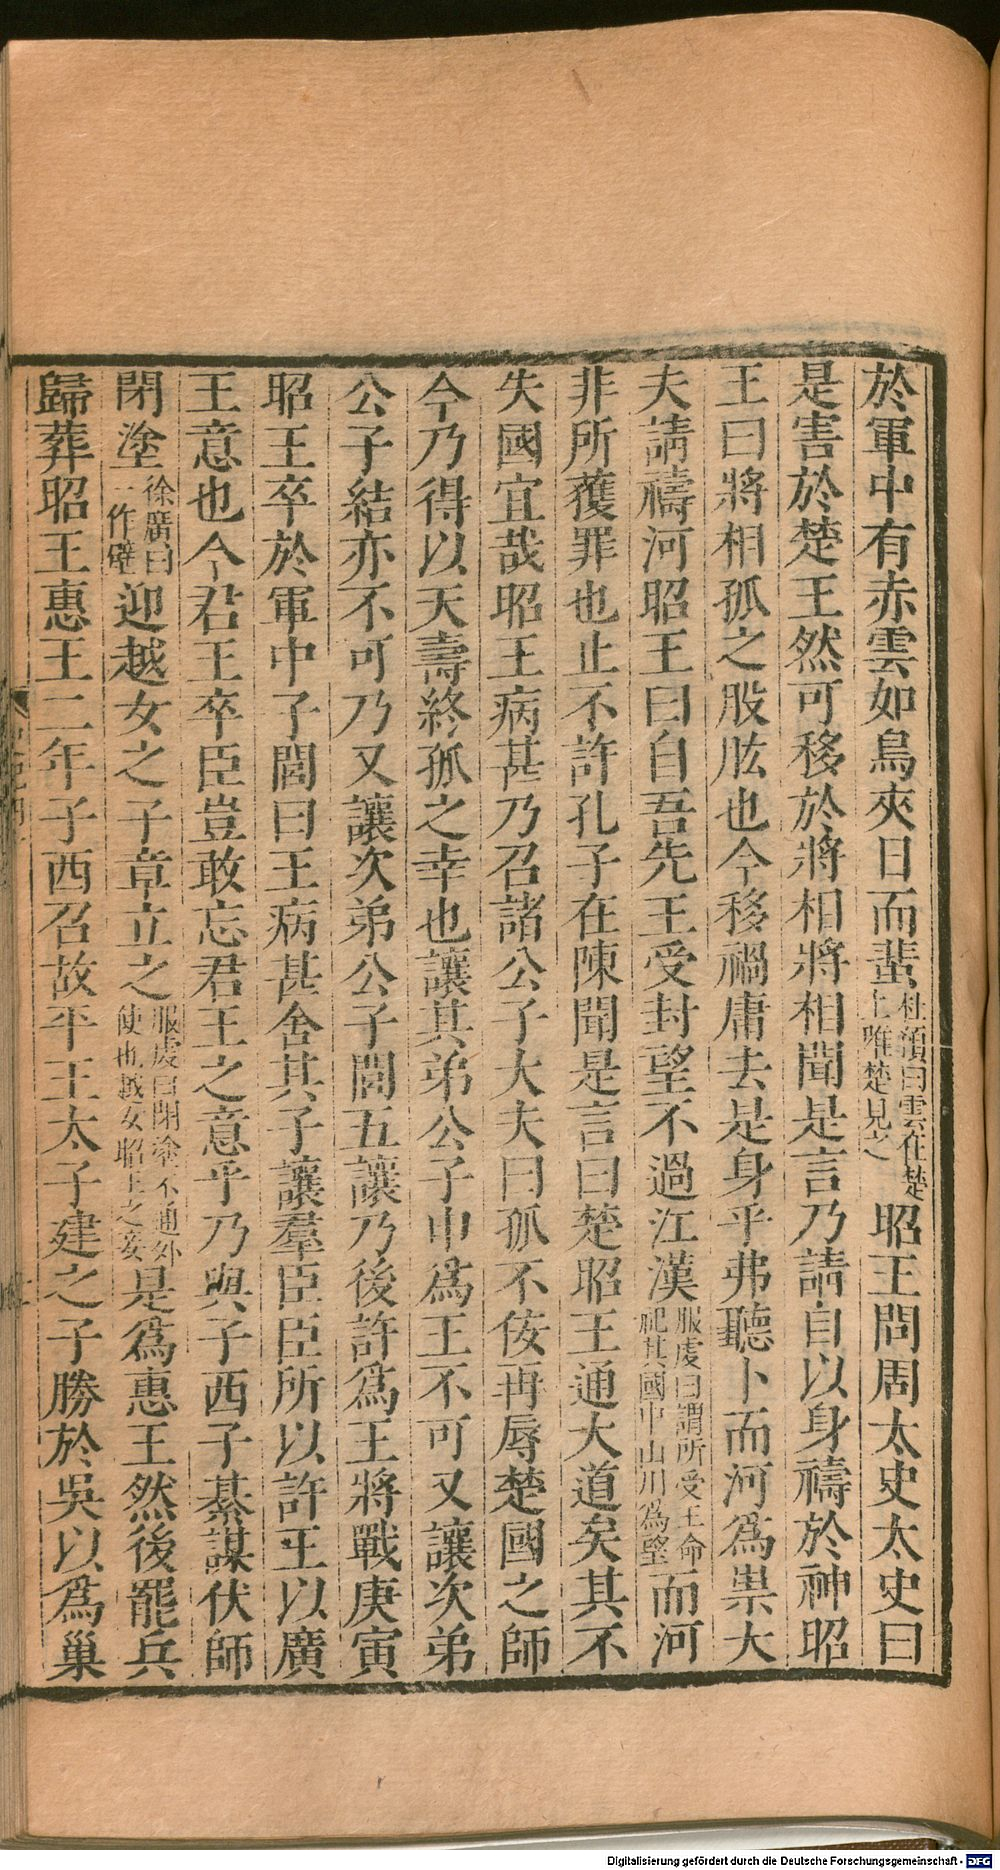 於軍中有赤雲如鳥夾日而蜚杜預曰雲在楚上唯楚見之昭王問周太史太史曰
是害於楚王然可移於將相將相聞是言乃請自以身禱於神昭
王曰將相孤之股肱也今移禍庸去是身乎弗聽卜而河爲祟大
夫請禱河昭王曰自吾先王受封望不過江漢服虔曰謂所受王命祀其國中山川爲望而河
非所獲罪也止不許孔子在陳聞是言曰楚昭王通大道矣其不
失國宜哉昭王病甚乃召諸公子大夫曰孤不佞再辱楚國之師
今乃得以天壽終孤之幸也讓其弟公子申爲王不可又讓次弟
公子結亦不可乃又讓次弟公子閭五讓乃後許爲王將戰庚寅
昭王卒於軍中子閭曰王病甚舍其子讓羣臣臣所以許王以廣
王意也今君王卒臣豈敢忘君王之意乎乃與子西子綦謀伏師
閉塗徐廣曰一作壁迎越女之子章立之服虔曰閉塗不通外使也越女昭王之妾是爲惠王然後罷兵
歸葬昭王惠王二年子西召故平王太子建之子勝於吳以爲巢
Digitalisierung gefördert durch die Deutsche Forschungsgemeinschaft - DFG